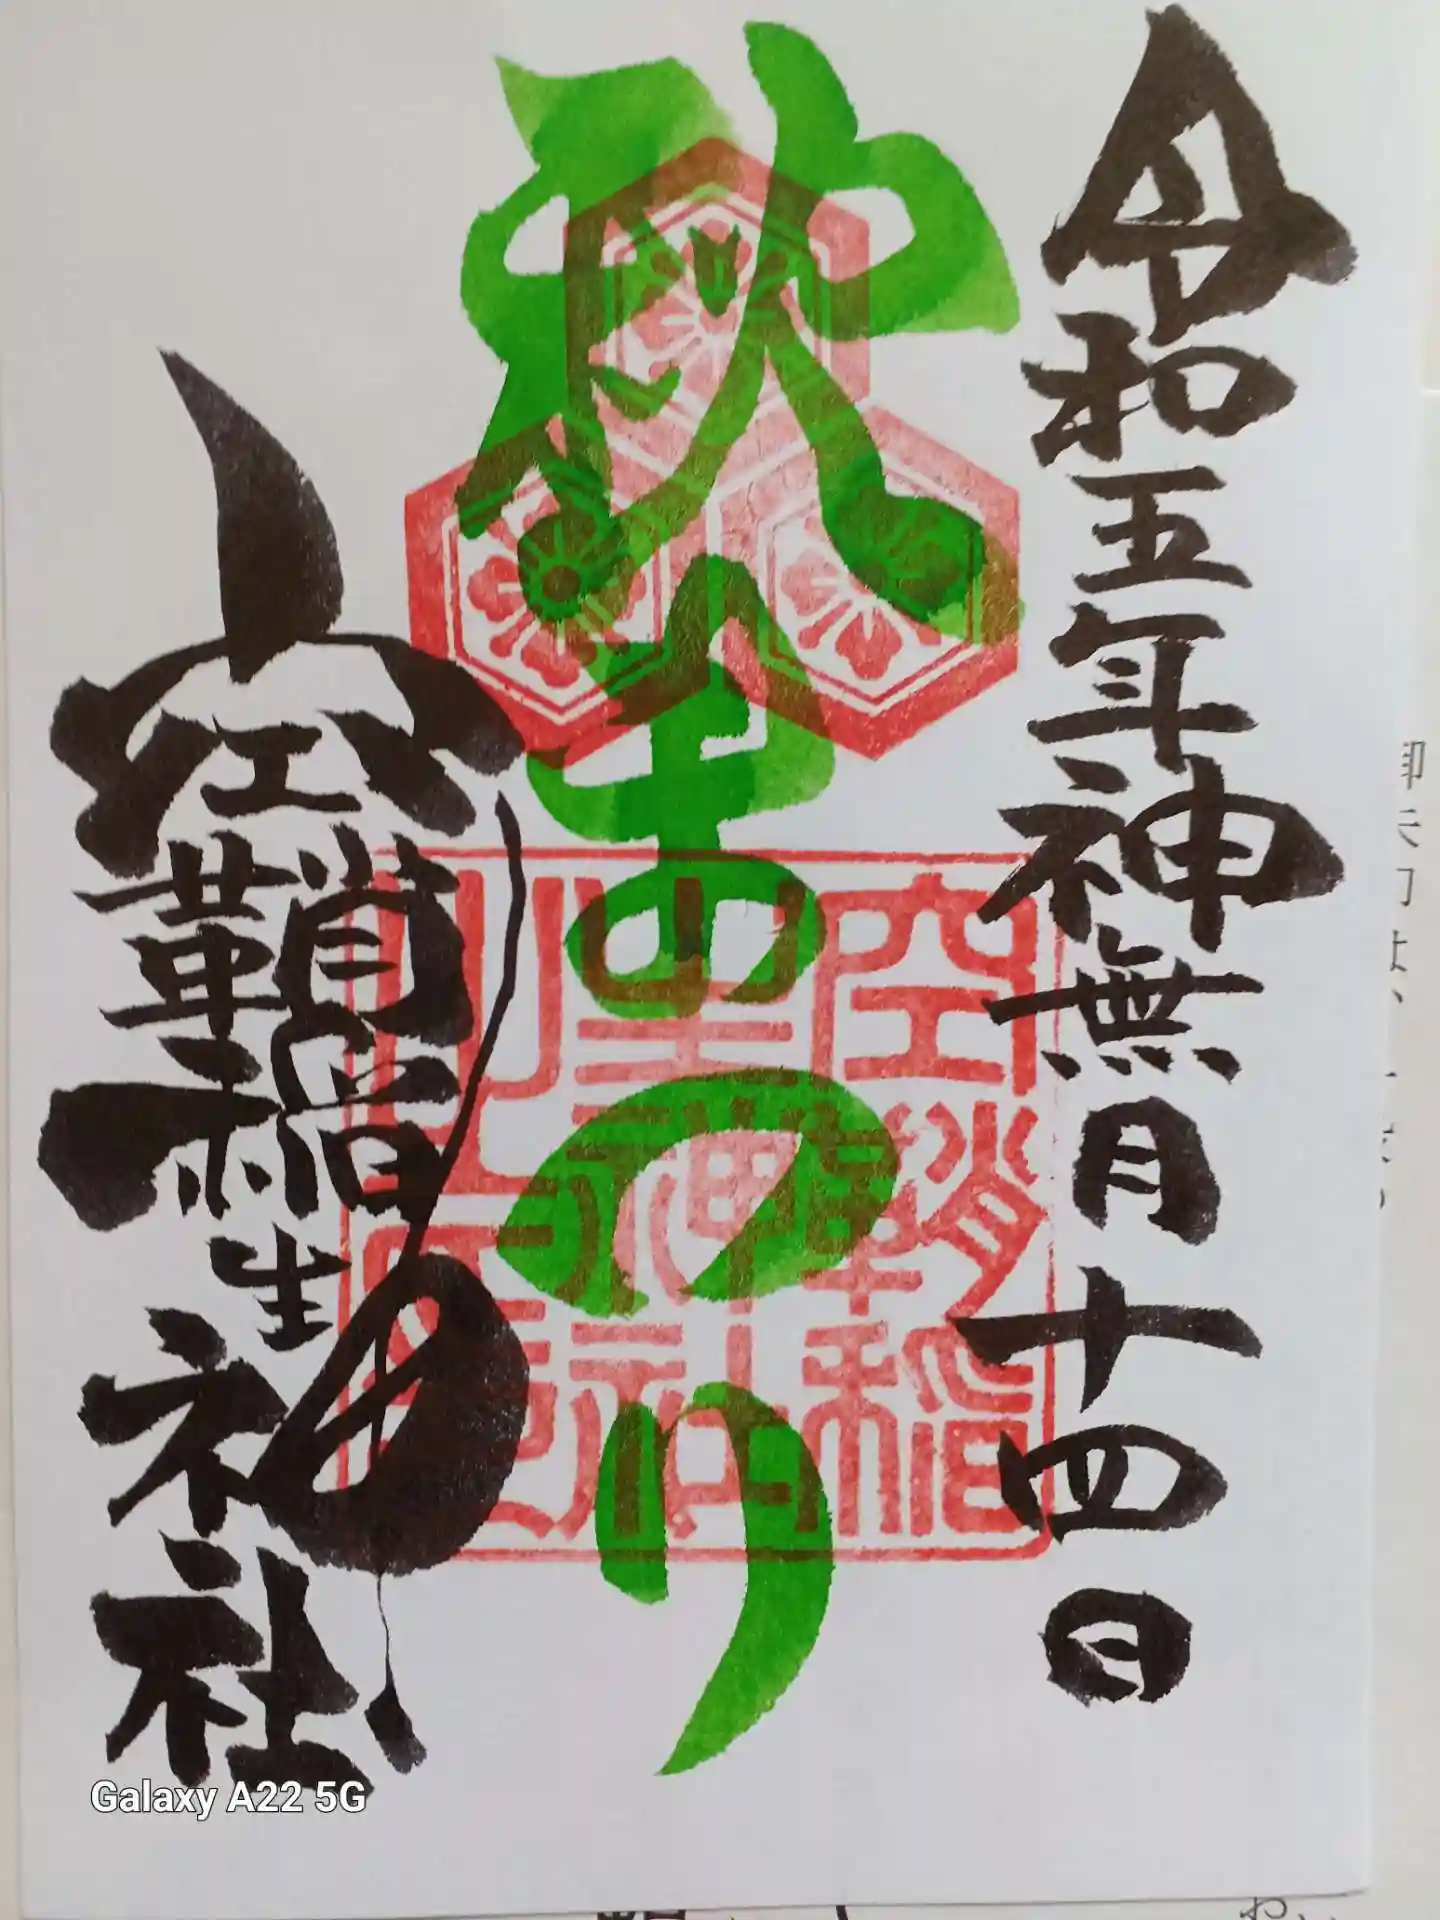 令和五年神無月十四日
秋まつり
空鞘稲生神社
空鞘稲
生神社
Galaxy A22 5G